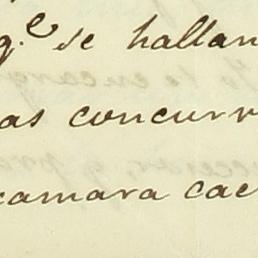 q.e se hallan
as concurr
camara cae